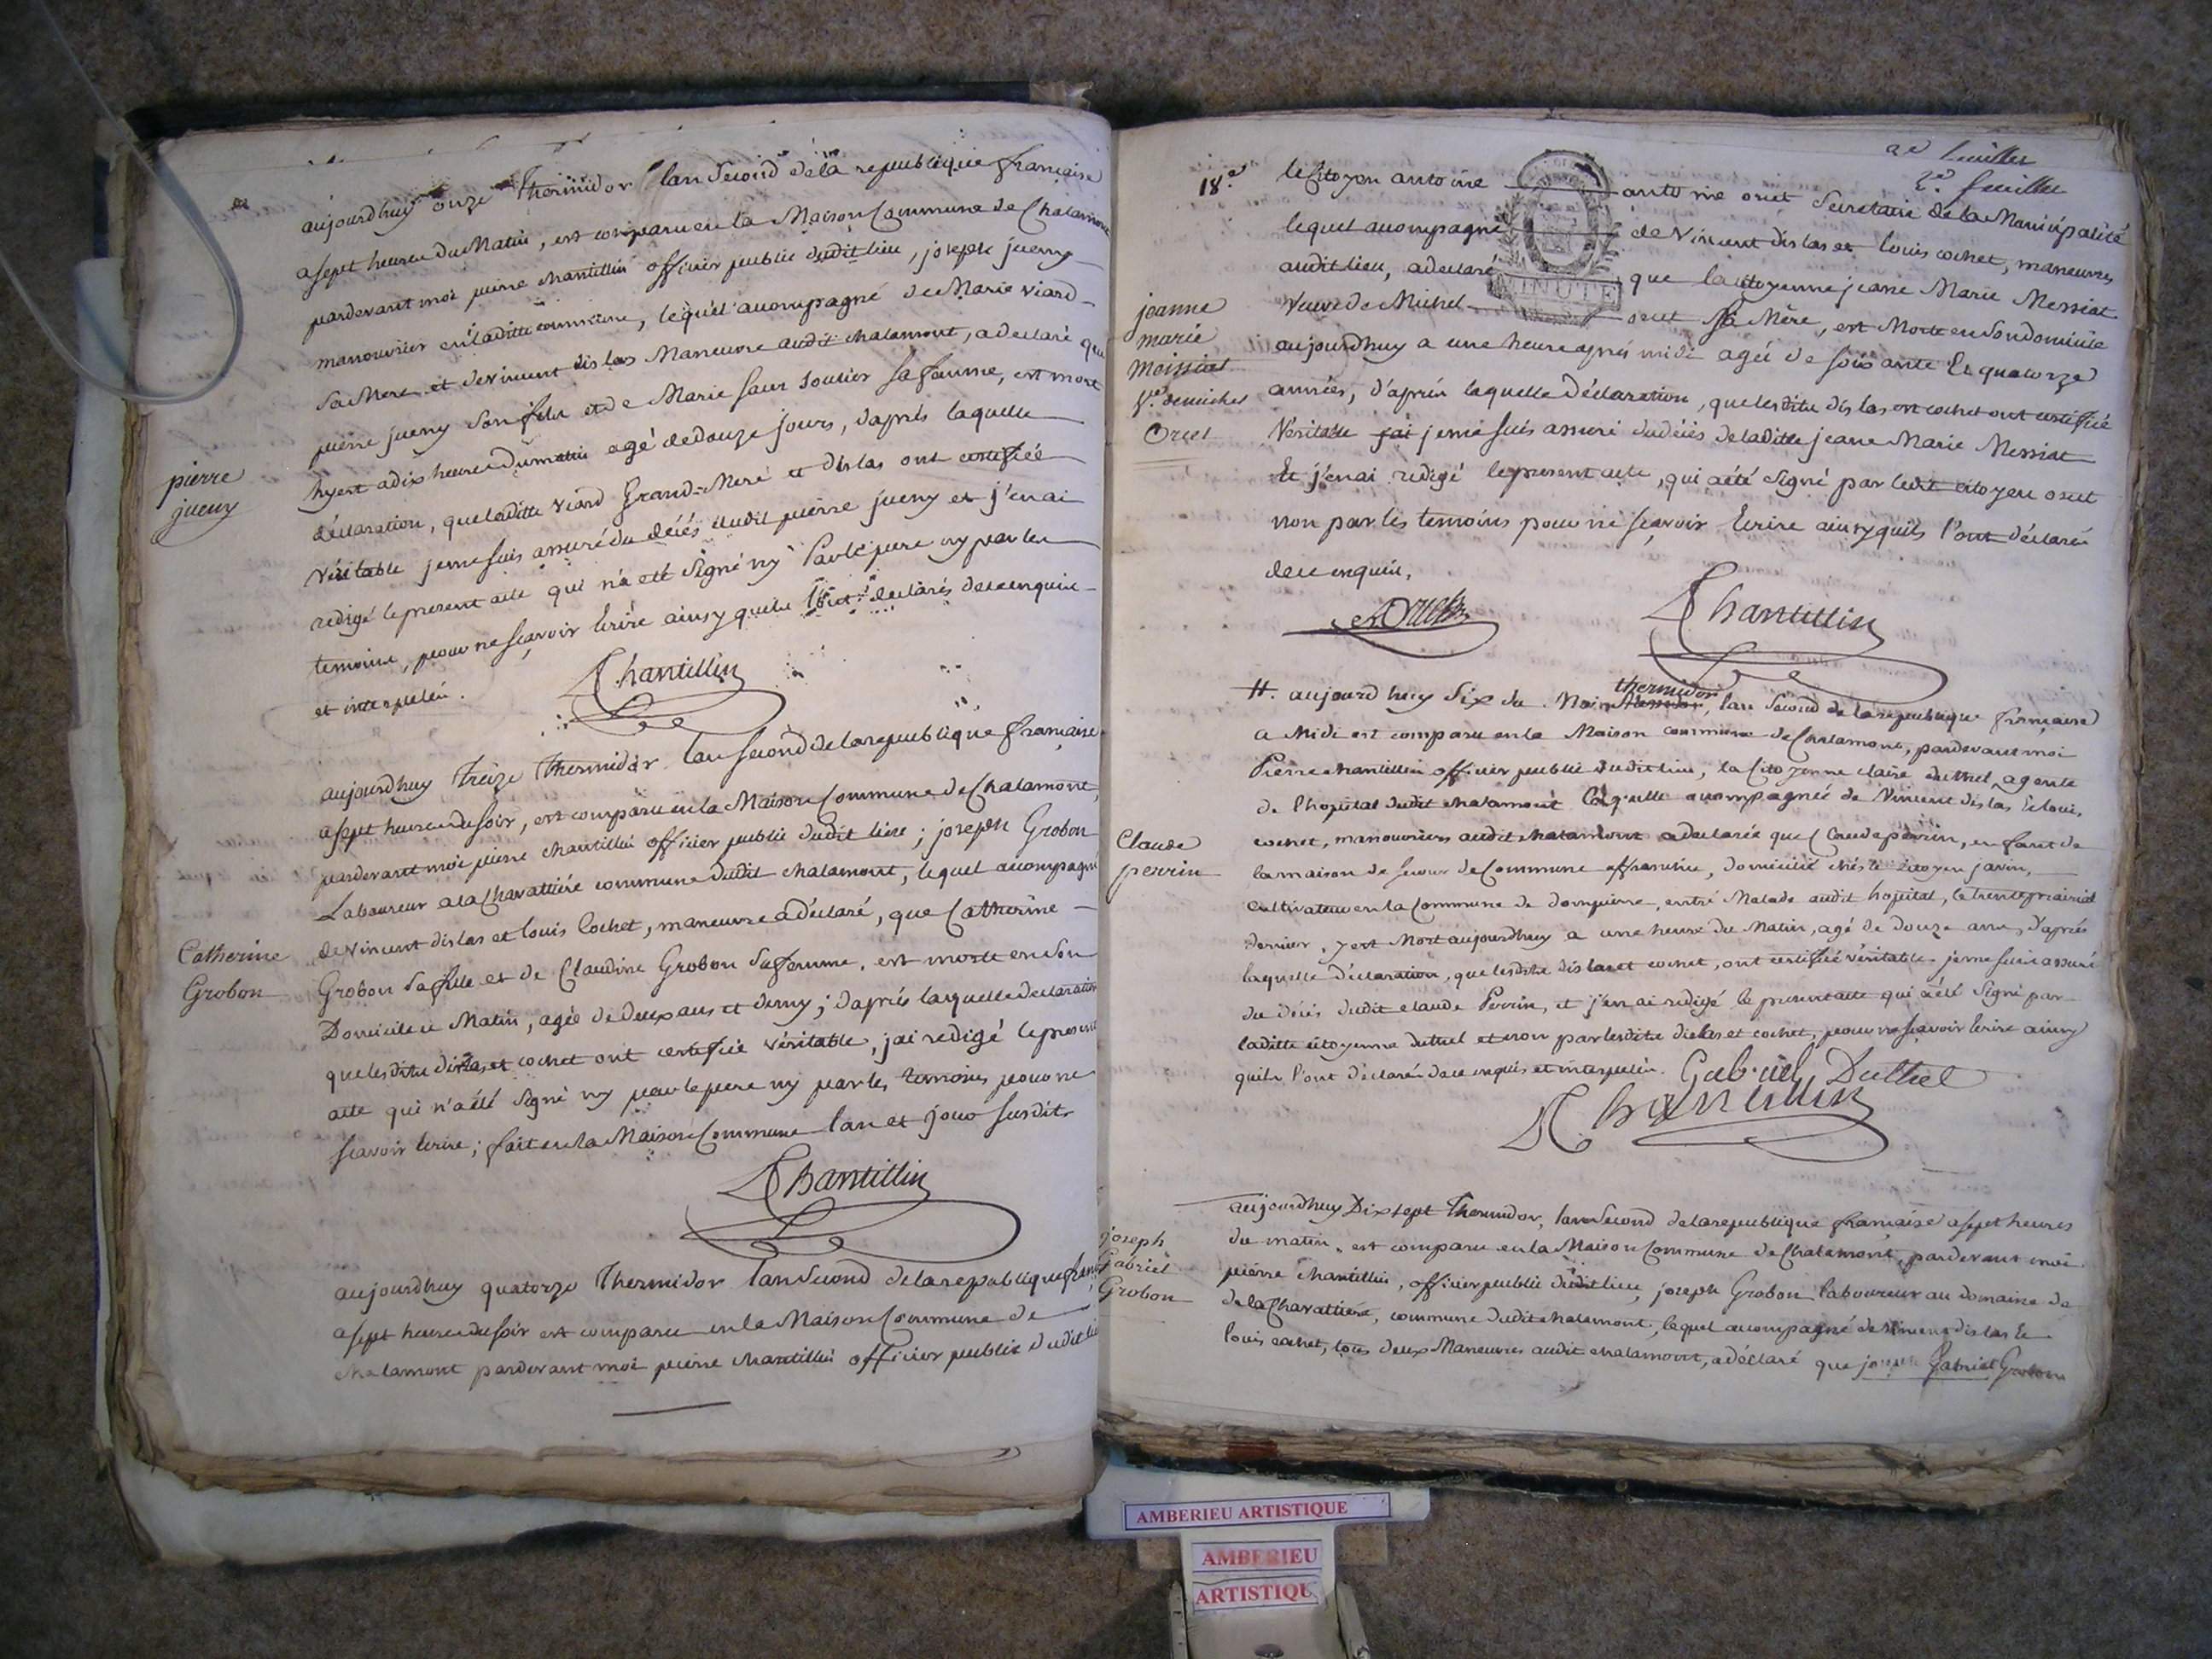 aujourdhuy onze Thermidor lan Second dela republique francaise
a sept heures du Matin, est comparu en la Maison Commune de Chalamont
pardevant moi pierre chantillin officier public dudit lieu, joseph jueny
manouvrier en laditte commune, lequel accompagné de Marie viard
Sa Mere et de vincent dislas Maneuvre audit chalamont, a declaré que
pierre jueny Son fils et de Marie Soulier Sa famme, est mort
hyert a dix heures du matin agé de douze jours, d'aprés laquelle
déclaration, que laditte viard Grand-Meré et dislas ont certifiée
véritable je me suis assuré du décés dudit pierre jueny et j'en ai
redigé le present acte qui n'a eté Signé ny Par le pere ny par les
temoins, pour ne sçavoir Ecrire ainsy quils l'ont declarés de ce enquis
et interpellés.
Chantillin
pierre
jueny
aujourdhuy Treize Thermidor lan second de la republique francaise
a sept heures du soir, est comparu en la Maison Commune de Chalamont,
pardevant moi pierre chantillin officier public dudit lieu; joseph Grobon
Laboureur a la Chavattiére commune dudit chalamont, lequel accompagné
de vincent dislas et louis Cochet, maneuvre a déclaré, que Catherine
Grobon Sa fille et de Claudine Grobon Sa femme, est morte en Son
Domicile ce Matin, agée de deux ans et demy; d'aprés laquelle declaration
que lesdits dislas et cochet ont certifié véritable, j'ai redigé le present
acte qui n'a été Signé ny par le pere ny par les temoins pour ne
scavoir Ecrire; fait en la Maison Commune lan et jour susdits
Chantillin
Catherine
Grobon
aujourdhuy quatorze Thermidor lan Second de la republique
a sept heures du soir est comparu en la Maison Commune de
chalamont pardevant moi pierre chantillin officier public dudit lieu
2e feuillet
2e. feuillet
18e
le Citoyen antoine antoine orcet Secretaire de la Municipalité
lequel accompagné de Vincent dislas et louis cochet, maneuvres
audit lieu, a declaré que la citoyenne jeane Marie Messiat
Veuve de Michel orcet Sa Mére, est Morte en Son domicile
aujourdhuy a une heure aprés midi agée de soixante Et quatorze
années, d'aprés laquelle Déclaration, que lesdits dislas et cochet ont certifiée
Véritable jai je me suis assuré du décés de laditte jeane Marie Messiat
Et j'en ai redigé le present acte, qui a été Signé par ledit citoyen orcet
non par les temoins pour ne sçavoir Ecrire ainsy quils l'ont déclaré
de ce enquis,
Chantillin
jeanne
marie
Moissiat
Ve. de michel
Orcet
H. aujourd huy Six du Mois thermidor, lan Second de la republique française
a Midi est comparu en la Maison commune de Chalamont, pardevant moi
Pierre chantillin officier public dudit lieu, la Citoyenne claire duthel, agente
de l'hopital dudit chalamont laquelle accompagnée de Vincent dislas Et louis
cochet, manouvriers audit chalamont a declarée que Claude perrin, enfant de
la maison de secour de Commune affranchie, domicilié chés le citoyen javin,
Cultivateur en la Commune de dompierre, entré Malade audit hopital, le trente prairial
dernier, y est Mort aujourdhuy a une heure du Matin, agé de douze ans, d'aprés
laquelle déclaration, que lesdits dislas et cochet, ont certifié véritable je me suis assuré
du décés dudit claude Perrin, et j'en ai redigé le present acte qui a été Signé par
laditte citoyenne duthel et non par lesdits dislas et cochet, pour ne sçavoir Ecrire ainsy
quils l'ont déclaré de ce enquis et interpellés. Gabriel Duthel
Chantillin
Claude
perrin
aujourdhuy Dix sept Thermidor, lan Second de la republique francaise a sept heures
du matin, est comparu en la Maison Commune de Chalamont, pardevant moi
pierre chantillin, officier public dudit lieu, joseph Grobon laboureur au domaine de
de la Chavattiere, commune dudit chalamont, lequel accompagné de Vincent dislas Et
louis cochet, tous deux Maneuvres audit chalamont, a déclaré que joseph Gabriel Grobon
joseph
Gabriel
Grobon
MINUTE
AMBERIEU ARTISTIQUE
AMBERIEU
ARTISTIQU